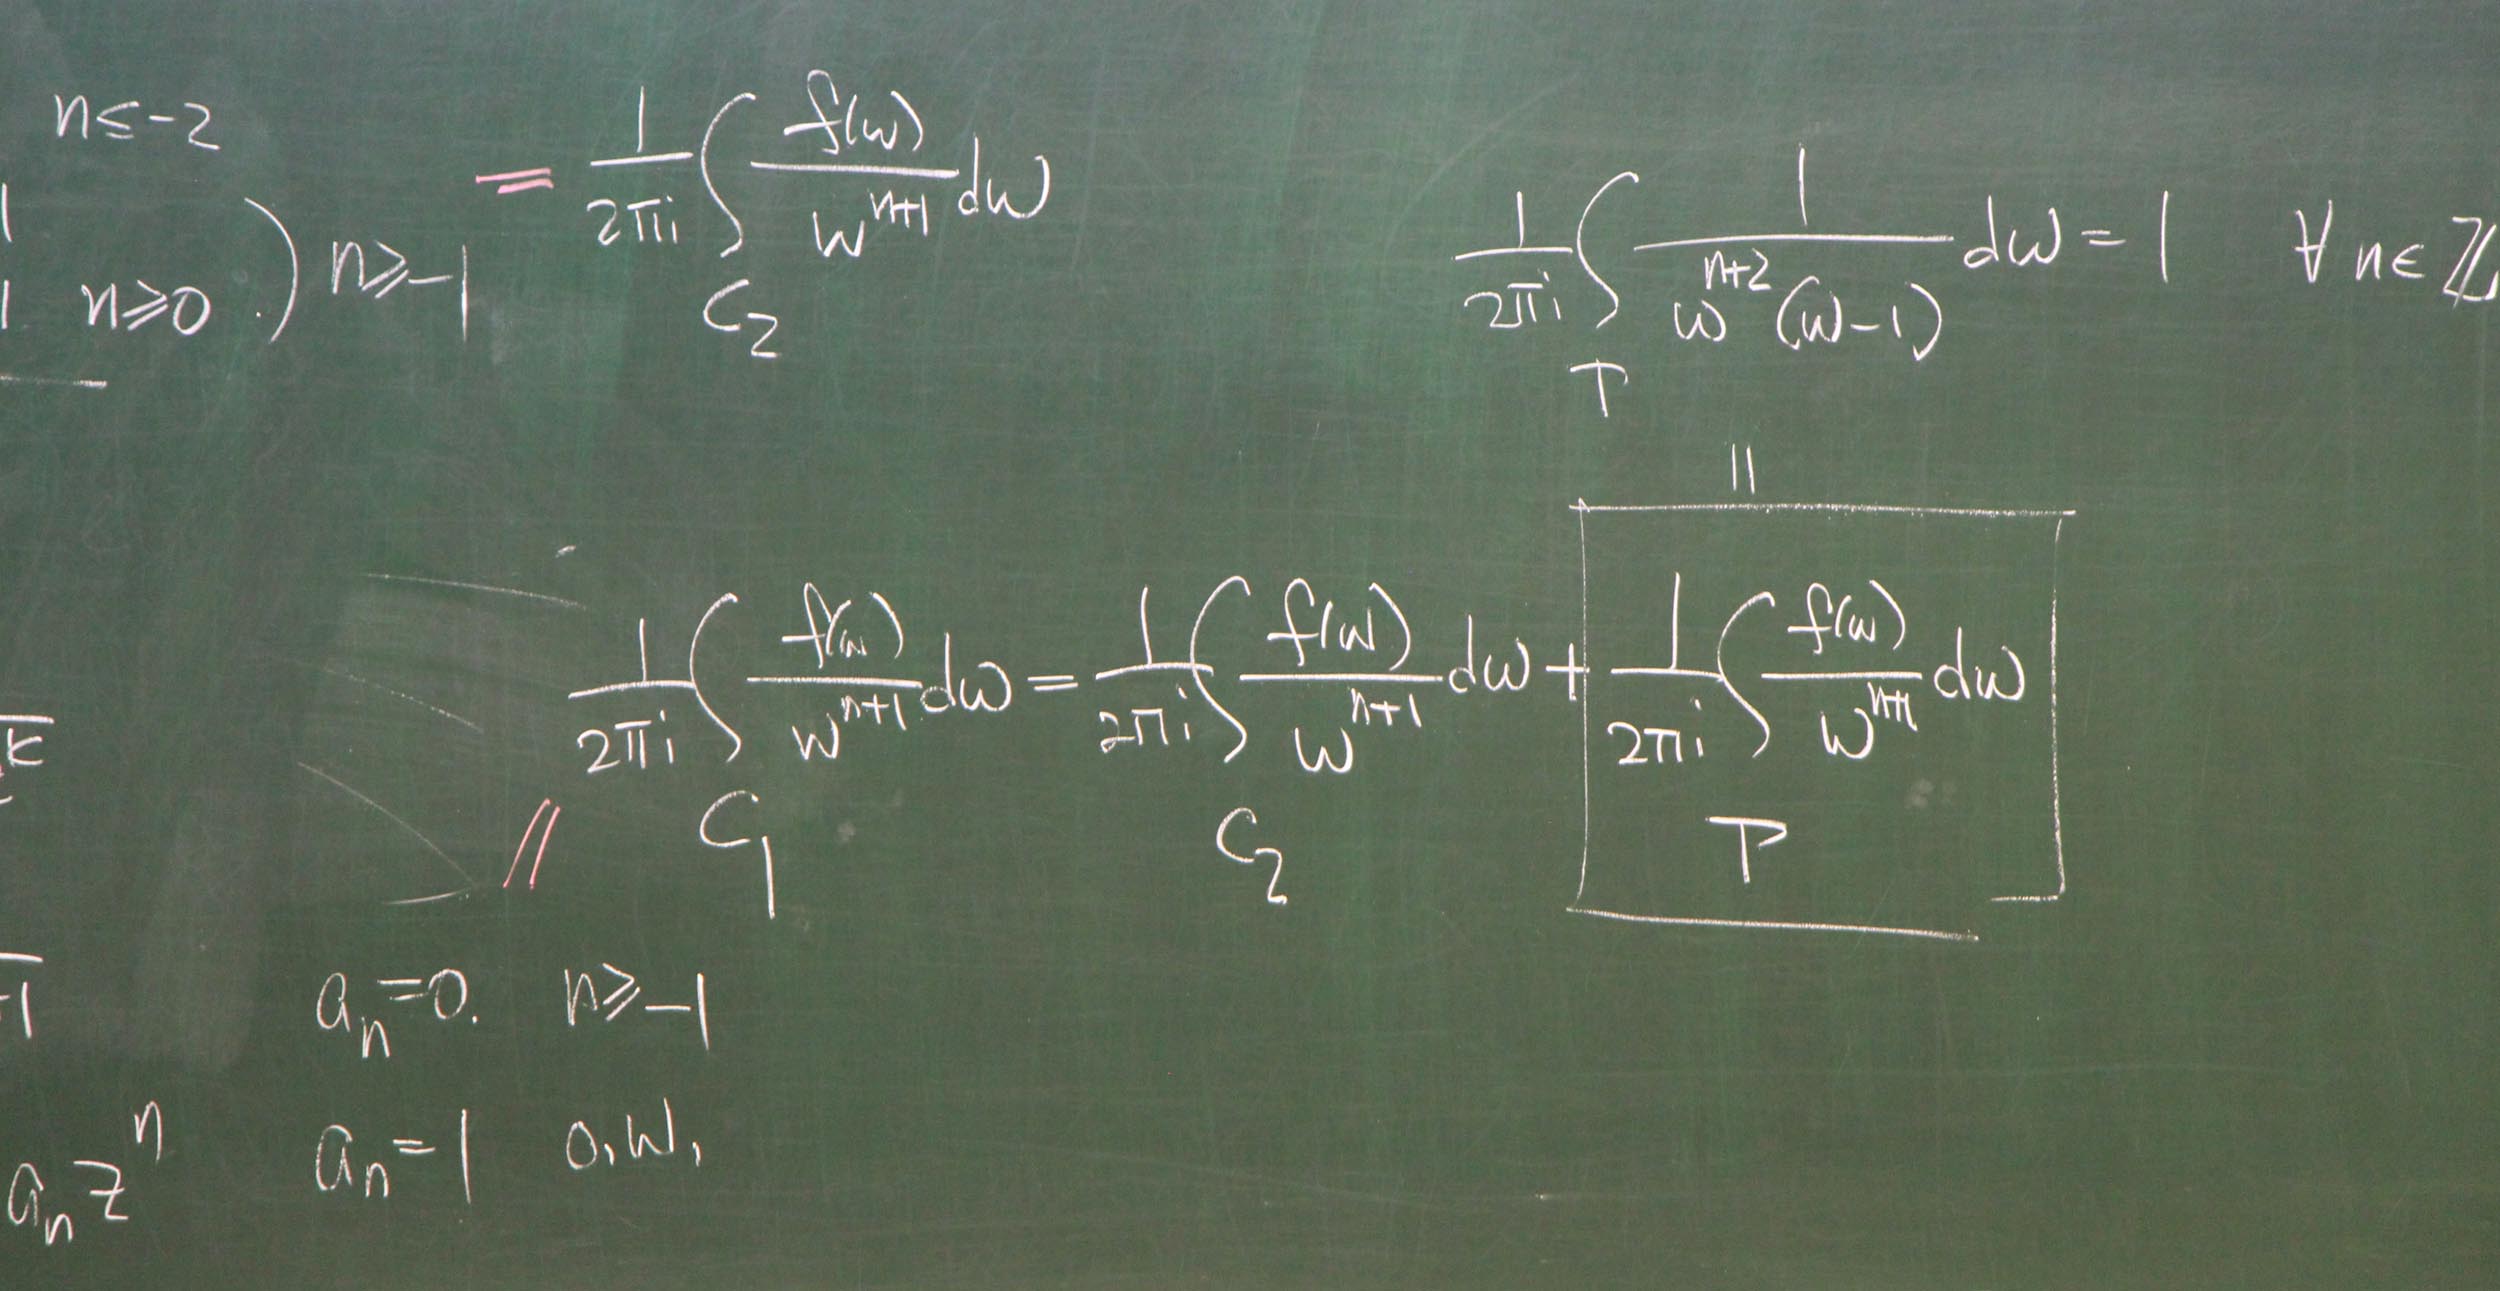 n≤-2
= 1/2πi ∫_{C_2} f(w)/w^{n+1} dw
1
1 n≥0 .) n≥-1
1/2πi ∫_T 1/w^{n+2}(w-1) dw = 1 ∀n∈ℤ
||
1/2πi ∫_{C_1} f(w)/w^{n+1} dw = 1/2πi ∫_{C_2} f(w)/w^{n+1} dw + 1/2πi ∫_T f(w)/w^{n+1} dw
//
a_n=0. n≥-1
a_n z^n a_n=1 o.w.